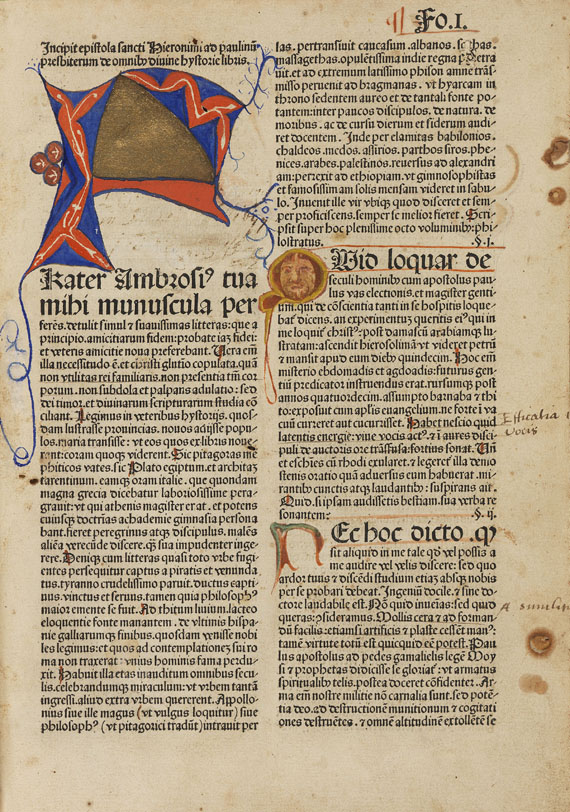 Fo.I.
Incipit epistola sancti Hieronimi ad paulinū
presbiterum de omnibꝰ diuine hystorie libris.
Frater Ambrosiꝰ tua
mihi munuscula per
ferēs. detulit simul ⁊ suauissimas litteras: que a
principio. amicitiarum fidem: probate iaꝫ fidei:
et veteris amicitie noua preferebant. Uera em̄
illa necessitudo ē. et christi glutino copulata. quā
non vtilitas rei familiaris. non presentia tm̄ cor
porum. non subdola et palpans adulatio: sed
dei timor. et diuinarum scripturarum studia cō
ciliant. Legimus in veteribus hystorijs. quos
dam lustrasse prouincias. nouos adijsse popu
los. maria transisse: vt eos quos ex libris noue
rant: coram quoqꝫ viderent. Sic pitagoras me
phiticos vates. sic Plato egiptum. et architaꝫ
tarentinum. eamqꝫ oram italie. que quondam
magna grecia dicebatur laboriosissime pera
grauit: vt qui athenis magister erat. et potens
cuiusqꝫ doctrias achademie gimnasia persona
bant. fieret peregrinus atqꝫ discipulus. malēs
aliēa verecūde discere. qꝫ sua impudenter inge
rere. Deniqꝫ cum litteras quasi toto vrbe fugi
entes persequitur captus a piratis et venunda
tus. tyranno crudelissimo paruit. ductus capti
uus. vinctus et seruus. tamen quia philosophꝰ
maior emente se fuit. Ad thitum liuium. lacteo
eloquentie fonte manantem. de vltimis hispa
nie galliarumqꝫ finibus. quosdam venisse nobi
les legimus: et quos ad contemplationeꝫ sui ro
ma non traxerat: vnius hominis fama perdu
xit. Habuit illa etas inauditum omnibus secu
lis. celebrandumqꝫ miraculum: vt vrbem tantā
ingressi. aliud extra vrbem quererent. Appollo
nius siue ille magus (vt vulgus loquitur) siue
philosophꝰ (vt pitagorici tradūt) intrauit per
las. pertransiuit caucasum. albanos. scithas.
massagethas. opulētissima indie regna penetra
uit. et ad extremum latissimo phison amne trās
misso peruenit ad bragmanas. vt hyarcam in
throno sedentem aureo et de tantali fonte po
tantem: inter paucos discipulos. de natura. de
moribus. ac de cursu dierum et siderum audi
ret docentem. Inde per elamitas babilonios.
chaldeos. medos. assirios. parthos siros. phe
nices. arabes. palestinos. reuersus ad alexandri
am: perexit ad ethiopiam. vt gimnosophistas
et famosissimam solis mensam videret in sabu
lo. Inuenit ille vir vbiqꝫ quod disceret et sem
per proficiscens. semper se melior fieret. Scri
psit super hoc plenissime octo voluminibꝰ: phi
lostratus. .§.i.
QUid loquar de
seculi hominibꝰ cum apostolus pau
lus vas electionis. et magister genti
um. qui de cōscientia tanti in se hospitis loque
bat᷑ dicens. an experimentuꝫ queritis eiꝰ qui in
me loquit᷑ christꝰ: post damascū arabiamqꝫ lu
stratam: ascendit hierosolimā vt videret petrū
⁊ mansit apud eum diebꝰ quindecim. Hoc em̄
misterio ebdomadis et agdoadis: futurus gen
tiū predicator instruendus erat. rursumqꝫ post
annos quatuordecim. assumpto barnaba ⁊ thi
to: exposuit cum aplis euangelium. ne forte ī va
cuū curreret aut cucurisset. Habet nescio quid
latentis energie: viue vocis actꝰ. ⁊ ī aures disci
puli de auctoris ore trāsfusa: fortius sonat. Un
et eschies cū rhodi exularet. ⁊ legeret᷑ illa demo
stenis oratio quā aduersus eum habuerat. mi
rantibꝰ cunctis atqꝫ laudantibꝰ: suspirans ait.
Quid. si ipsam audissetis bestiam. sua verba re
sonantem: .§.ij.
NEc hoc dicto. qꝫ
sit aliquid in me tale qd̄ vel possis a
me audire vel velis discere: sed quo
ardor tuus ⁊ discēdi studium etiaꝫ absqꝫ nobis
per se probari debeat. Ingeniū docile. ⁊ sine do
ctore laudabile est. Nō quid inueias: sed quid
queras: ꝯsideramus. Mollis cera ⁊ ad forman
dū facilis: etiamsi artificis ⁊ plaste cessēt manꝰ:
tamē virtute totū est quicquid eē potest. Pau
lus apostolus ad pedes gamalielis legē Moy
si ⁊ prophetas didicisse se gloriat᷑: vt armatus
spiritualibꝰ telis. postea doceret cōfidenter. Ar
ma em̄ nostre militie nō carnalia sunt. sed potē
tia deo. ad destructionē munitionum ⁊ cogitati
ones destruētes. ⁊ omnē altitudinē extollētē se
Efficatia
vocis
A simili